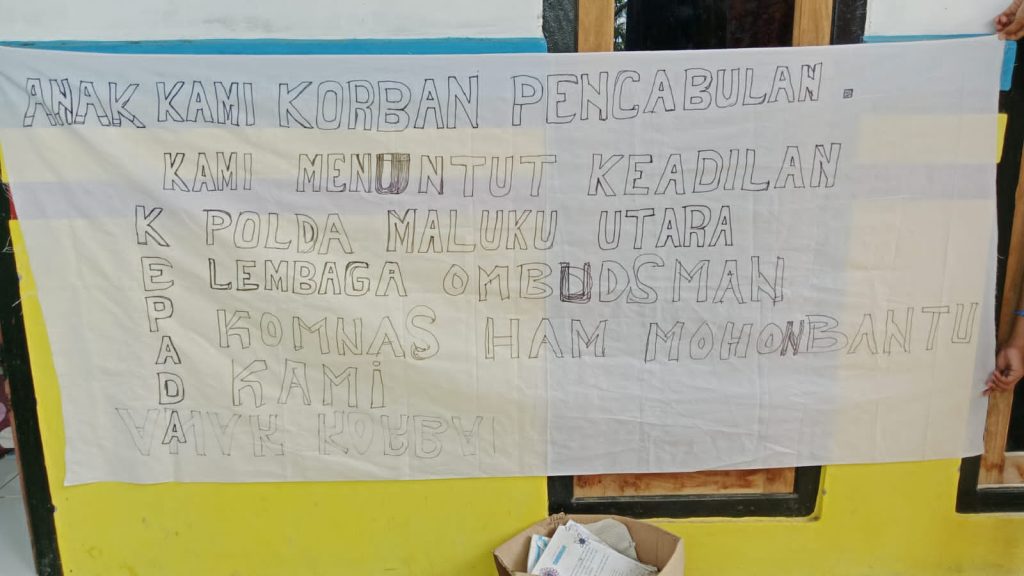 ANAK KAMI KORBAN PENCABULAN.
KAMI MENUNTUT KEADILAN
KEPADA
POLDA MALUKU UTARA
LEMBAGA OMBUDSMAN
KOMNAS HAM MOHON BANTU
KAMI
ANAK KORBA